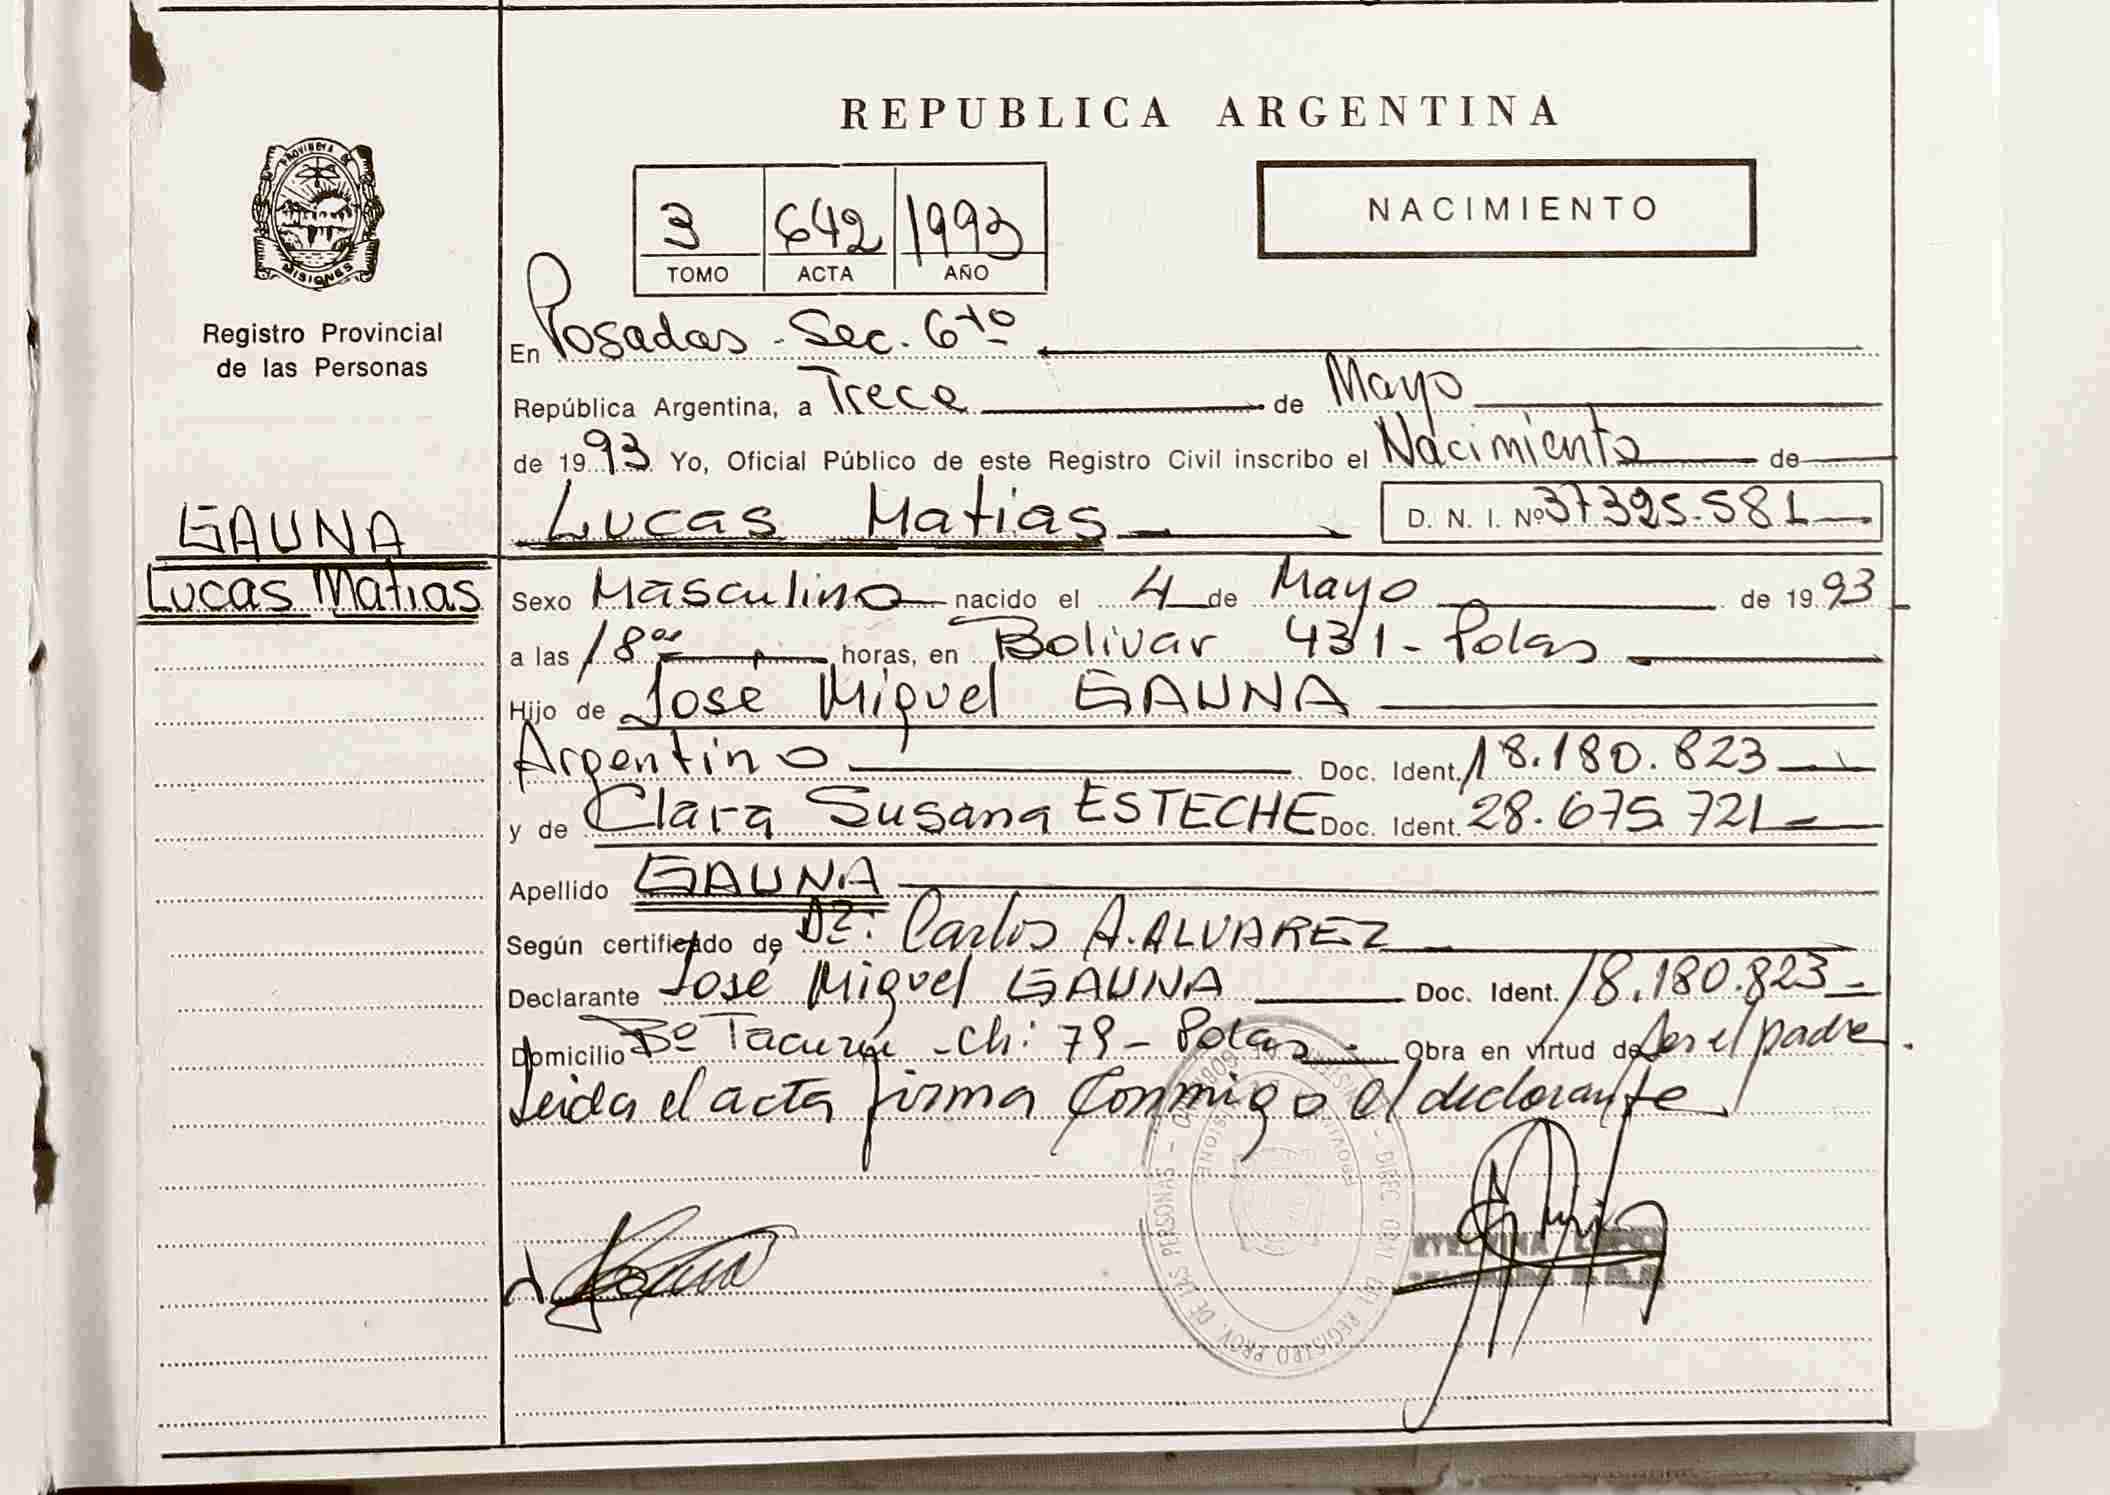 REPUBLICA ARGENTINA
PROVINCIA DE
MISIONES
Registro Provincial
de las Personas
3 642 1993
TOMO ACTA AÑO
NACIMIENTO
En Posadas - Sec. 6ta
República Argentina, a Trece de Mayo
de 1993 Yo, Oficial Público de este Registro Civil inscribo el Nacimiento de
GAUNA
Lucas Matias
Lucas Matias D. N. I. Nº 37325.581
Sexo Masculino nacido el 4 de Mayo de 1993
a las 18 horas, en Bolivar 431 - Pdas
Hijo de José Miguel GAUNA
Argentino Doc. Ident. 18.180.823
y de Clara Susana ESTECHE Doc. Ident. 28.675 721
Apellido GAUNA
Según certificado de DE: Carlos A. ALVAREZ
Declarante José Miguel GAUNA Doc. Ident. 18.180.823
Domicilio Bº Tacurú - Ch: 79 - Pdas Obra en virtud de ser el padre
Leida el acta firma conmigo el declarante
REGISTRO PROV. DE LAS PERSONAS